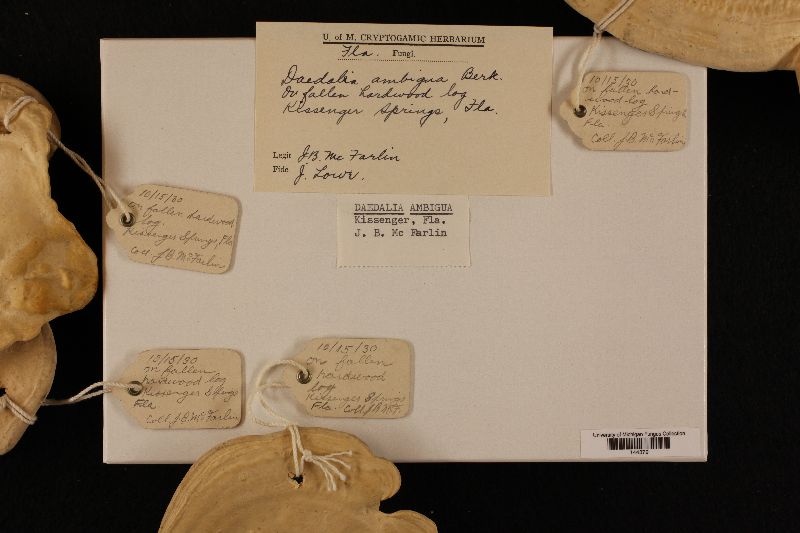 U. of M. CRYPTOGAMIC HERBARIUM
Fla. Fungi.
Daedalia ambigua Berk.
On fallen hardwood log
Kissenger Springs, Fla.
Legit J.B. Mc Farlin
Fide J. Lowe.
DAEDALIA AMBIGUA
Kissenger, Fla.
J. B. Mc Farlin
10/15/30
on fallen hard-
wood log
Kissenger Springs
Fla.
Coll. J.B. McFarlin
10/15/30
on fallen hardwood
log.
Kissenger Springs, Fla
Coll. J.B. McFarlin
10/15/30
on fallen
hardwood log
Kissenger Springs
Fla
Coll. J.B. McFarlin
10/15/30
on fallen
hardwood
log
Kissenger Springs
Fla. Coll. J.B. McF.
University of Michigan Fungus Collection